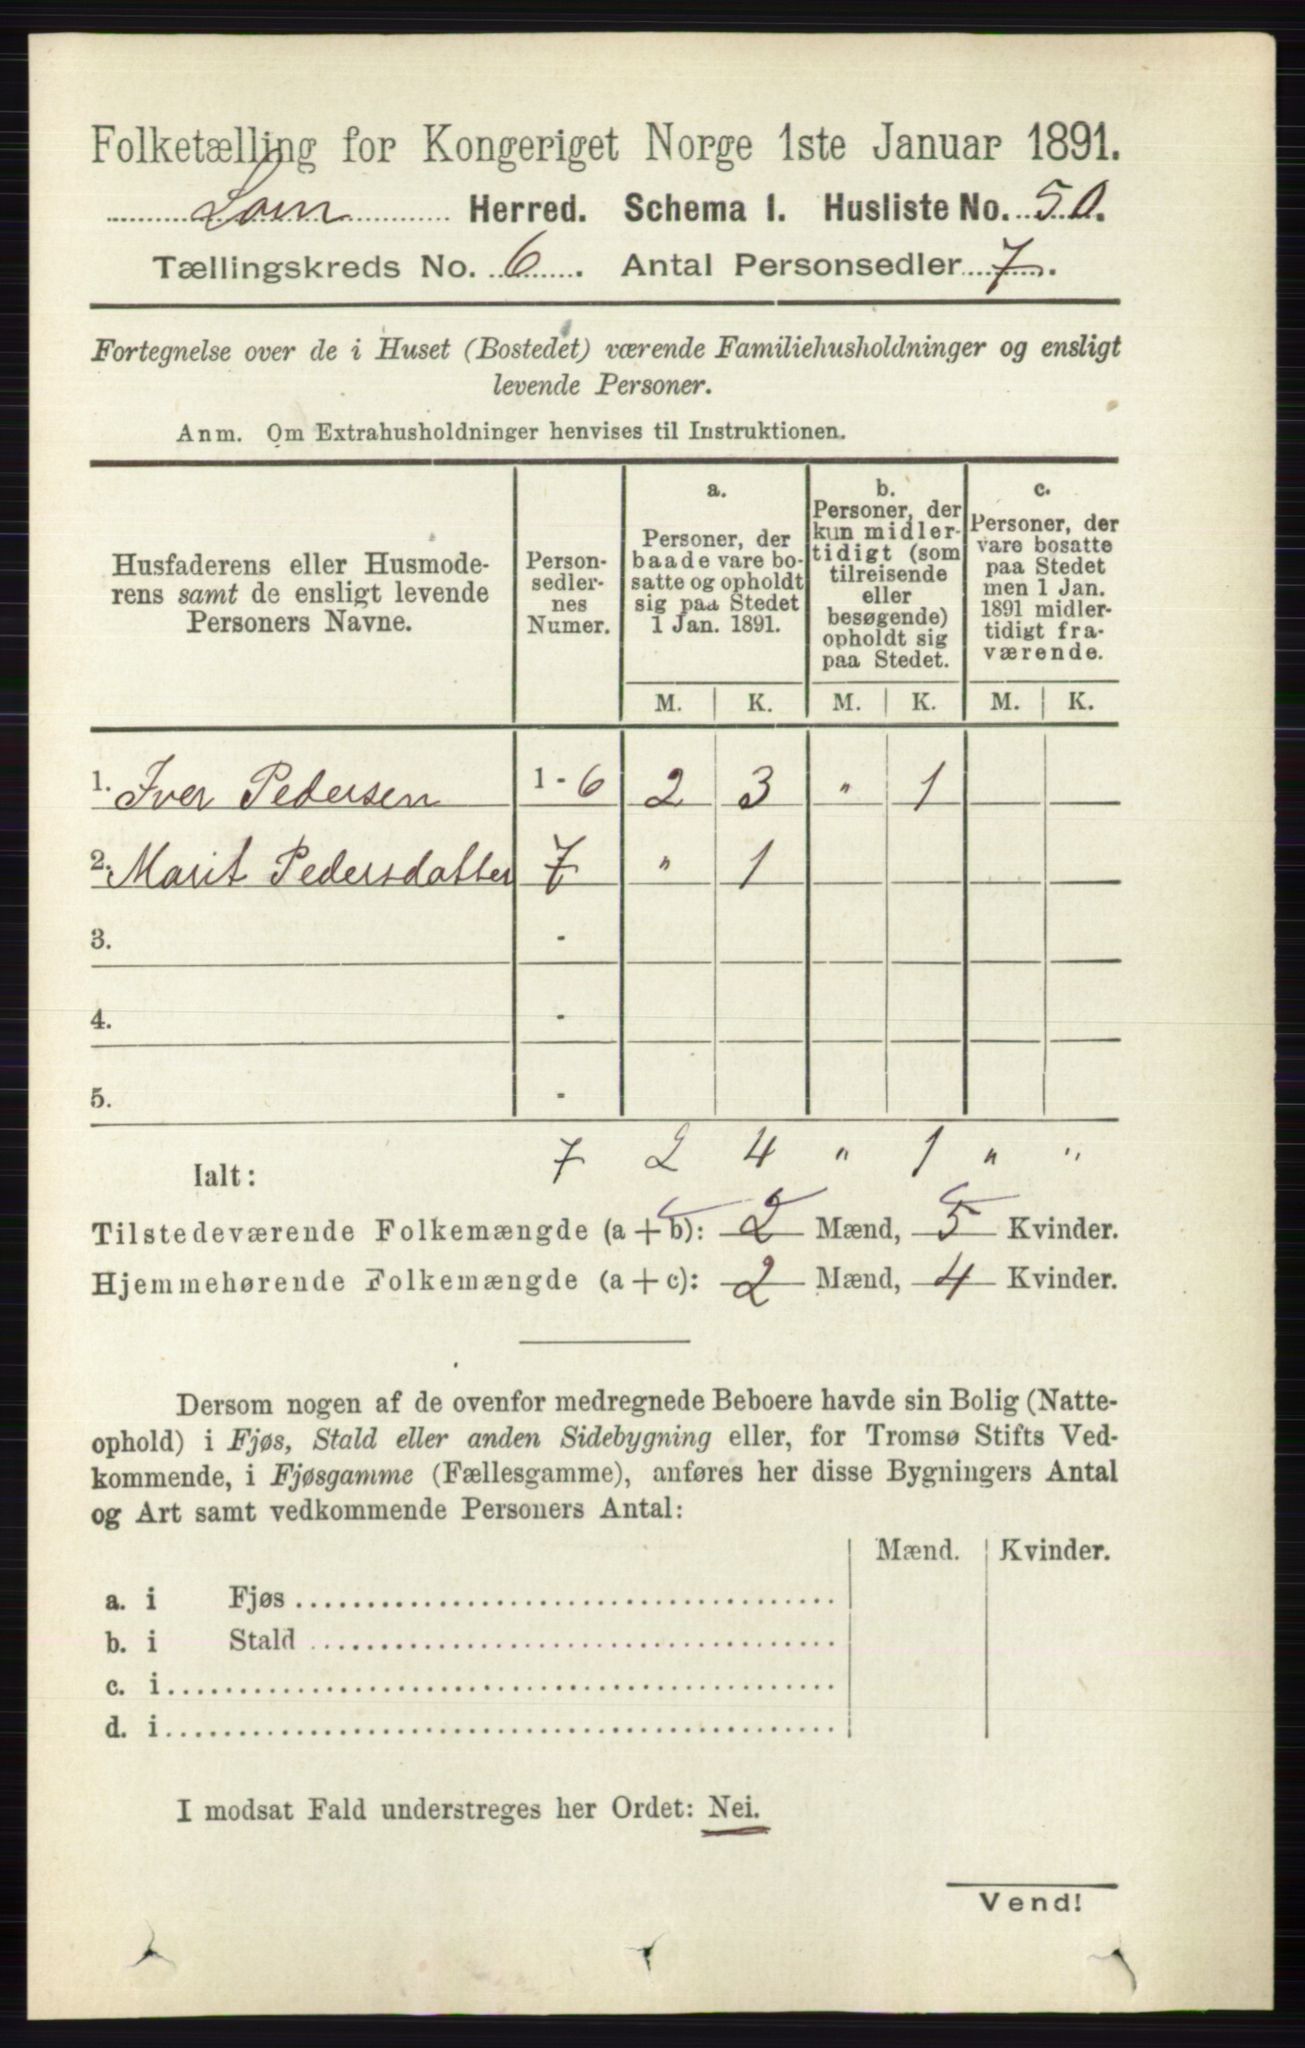 Folketælling for Kongeriget Norge 1ste Januar 1891.
Lom Herred. Schema I. Husliste No. 50.
Tællingskreds No. 6. Antal Personsedler 7.
Fortegnelse over de i Huset (Bostedet) værende Familiehusholdninger og ensligt
levende Personer.
Anm. Om Extrahusholdninger henvises til Instruktionen.
Husfaderens eller Husmode-
rens samt de ensligt levende
Personers Navne.
Person-
sedler-
nes
Numer.
a.
Personer, der
baade vare bo-
satte og opholdt
sig paa Stedet
1 Jan. 1891.
b.
Personer, der
kun midler-
tidigt (som
tilreisende
eller
besøgende)
opholdt sig
paa Stedet.
c.
Personer, der
vare bosatte
paa Stedet
men 1 Jan.
1891 midler-
tidigt fra-
værende.
M. K. M. K. M. K.
1. Iver Pedersen 1 - 6 2 3 " 1
2. Marit Pedersdatter 7 " 1
3. -
4. -
5. -
Ialt: 7 2 4 " 1 " "
Tilstedeværende Folkemængde (a + b): 2 Mænd, 5 Kvinder.
Hjemmehørende Folkemængde (a + c): 2 Mænd, 4 Kvinder.
Dersom nogen af de ovenfor medregnede Beboere havde sin Bolig (Natte-
ophold) i Fjøs, Stald eller anden Sidebygning eller, for Tromsø Stifts Ved-
kommende, i Fjøsgamme (Fællesgamme), anføres her disse Bygningers Antal
og Art samt vedkommende Personers Antal:
Mænd. Kvinder.
a. i Fjøs
b. i Stald
c. i
d. i
I modsat Fald understreges her Ordet: Nei.
Vend!